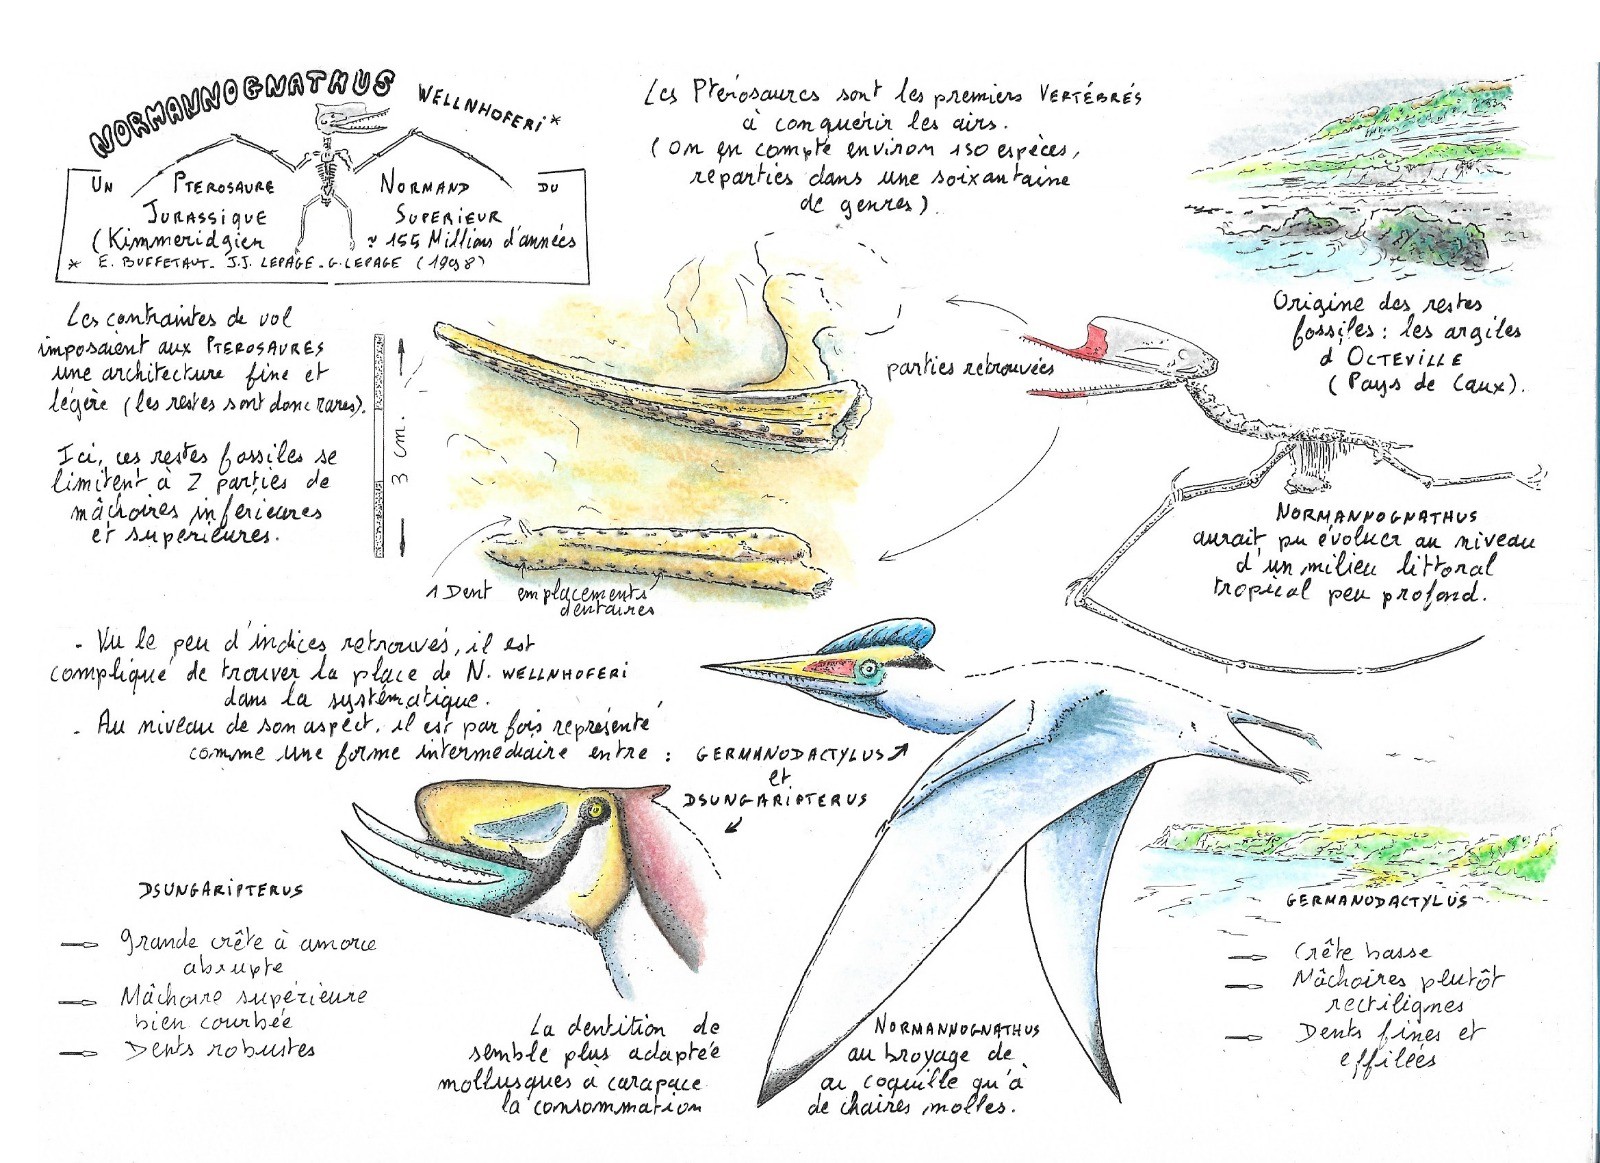 NORMANNOGNATHUS WELLNHOFERI*
UN PTEROSAURE NORMAND DU
JURASSIQUE SUPERIEUR
(Kimmeridgien ≈ 155 Millions d'années
* E. BUFFETAUT - J.J. LEPAGE - G. LEPAGE (1998)
Les Ptérosaures sont les premiers VERTÉBRÉS
à conquérir les airs.
(On en compte environ 150 espèces,
réparties dans une soixantaine
de genres).
Origine des restes
fossiles : les argiles
d'OCTEVILLE
(Pays de Caux).
Les contraintes de vol
imposaient aux PTEROSAURES
une architecture fine et
légère (les restes sont donc rares).
Ici, ces restes fossiles se
limitent à 2 parties de
mâchoires inférieures
et supérieures.
3 cm.
parties retrouvées
1 Dent emplacements
dentaires
NORMANNOGNATHUS
aurait pu évoluer au niveau
d'un milieu littoral
tropical peu profond.
- Vu le peu d'indices retrouvés, il est
compliqué de trouver la place de N. WELLNHOFERI
dans la systématique.
- Au niveau de son aspect, il est parfois représenté
comme une forme intermédiaire entre : GERMANODACTYLUS
et
DSUNGARIPTERUS
DSUNGARIPTERUS
Grande crête à amorce
abrupte
Mâchoire supérieure
bien courbée
Dents robustes
La dentition de NORMANNOGNATHUS
semble plus adaptée au broyage de
mollusques à carapace ou coquille qu'à
la consommation de chaires molles.
GERMANODACTYLUS
Crête basse
Mâchoires plutôt
rectilignes
Dents fines et
effilées